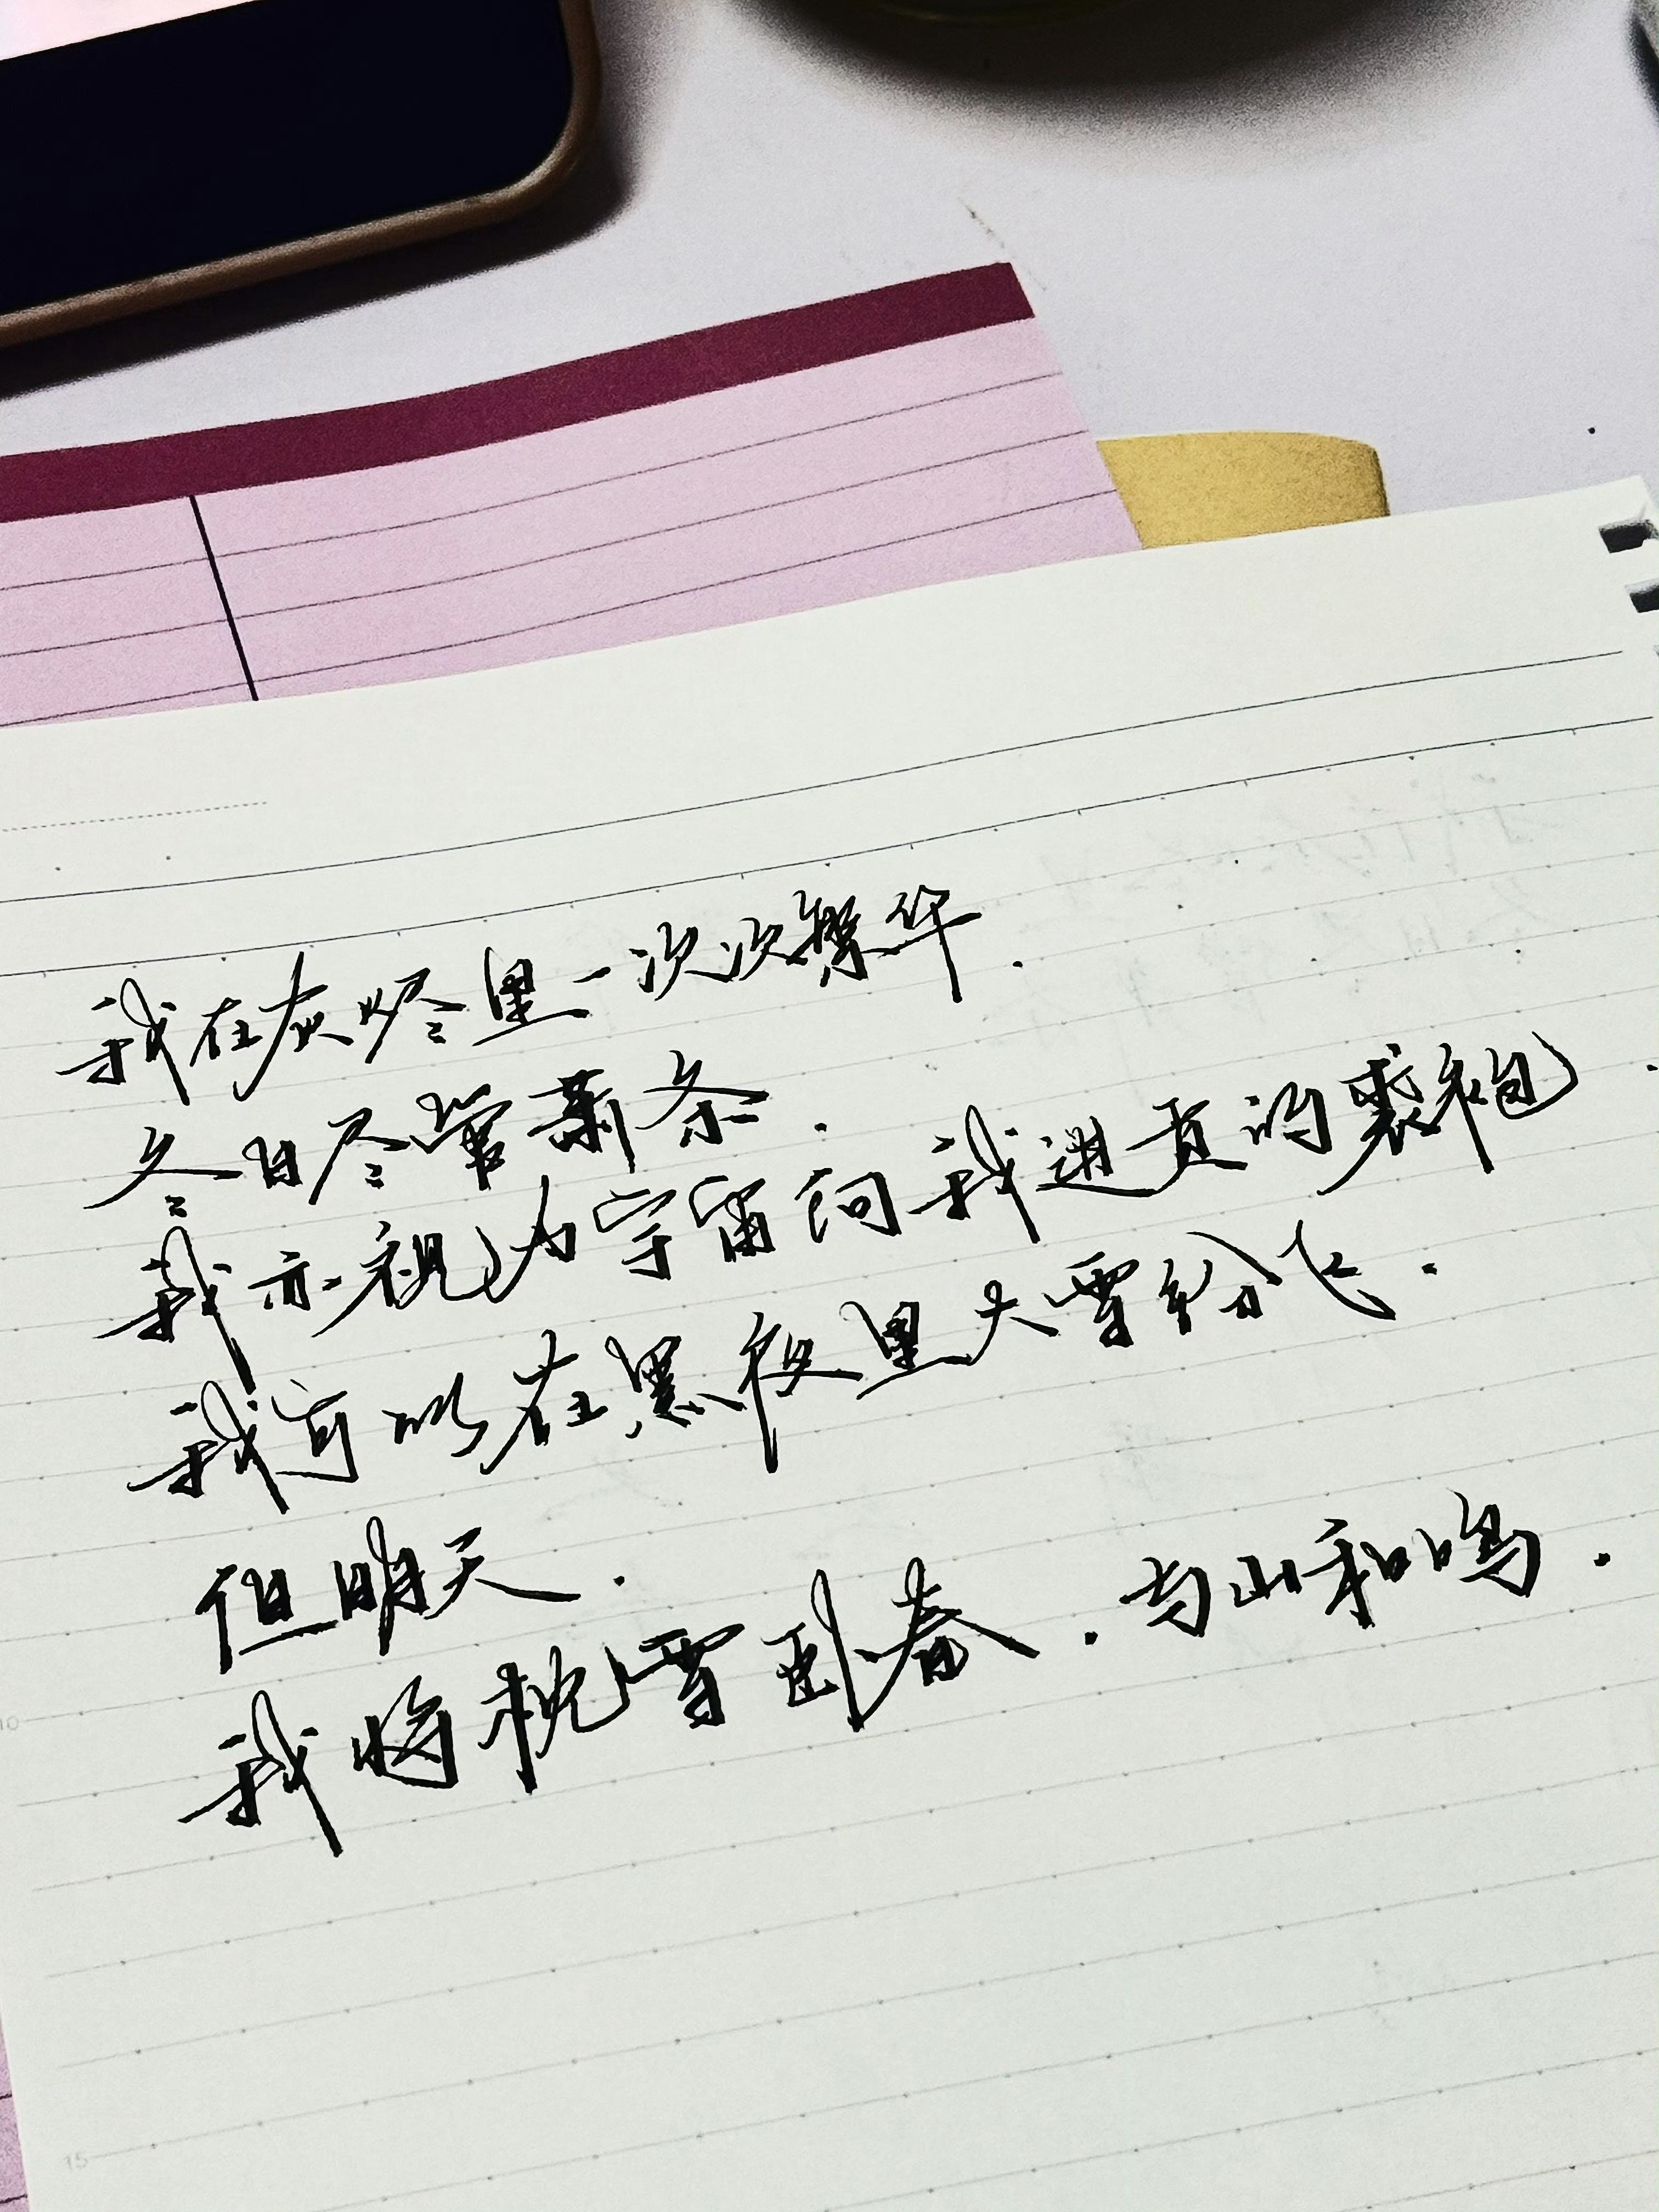 我在灰烬里一次次繁华.
冬日尽管萧条.
我亦视为宇宙向我进贡的裘袍.
我可以在黑夜里大雪纷飞.
但明天.
我将枕雪到春.与山和鸣.
10
15